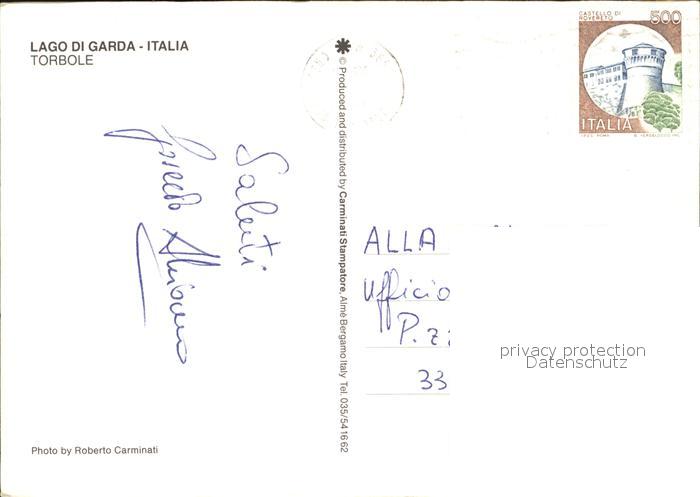 LAGO DI GARDA - ITALIA
TORBOLE
Saluti
© Produced and distributed by Carminati Stampatore, Almè Bergamo Italy Tel. 035/541662
CASTELLO DI
ROVERETO
500
ITALIA
ALLA
Ufficio
P.z
33
privacy protection
Datenschutz
Photo by Roberto Carminati